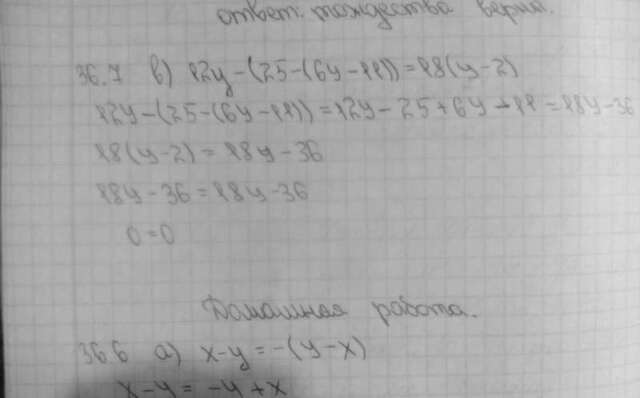 ответ: тождества верны.
36.7 в) 12y-(25-(6y-11))=18(y-2)
12y-(25-(6y-11))=12y-25+6y+11=18y-36
18(y-2)=18y-36
18y-36=18y-36
0=0
Домашная работа.
36.6 а) x-y=-(y-x)
x-y=-y+x